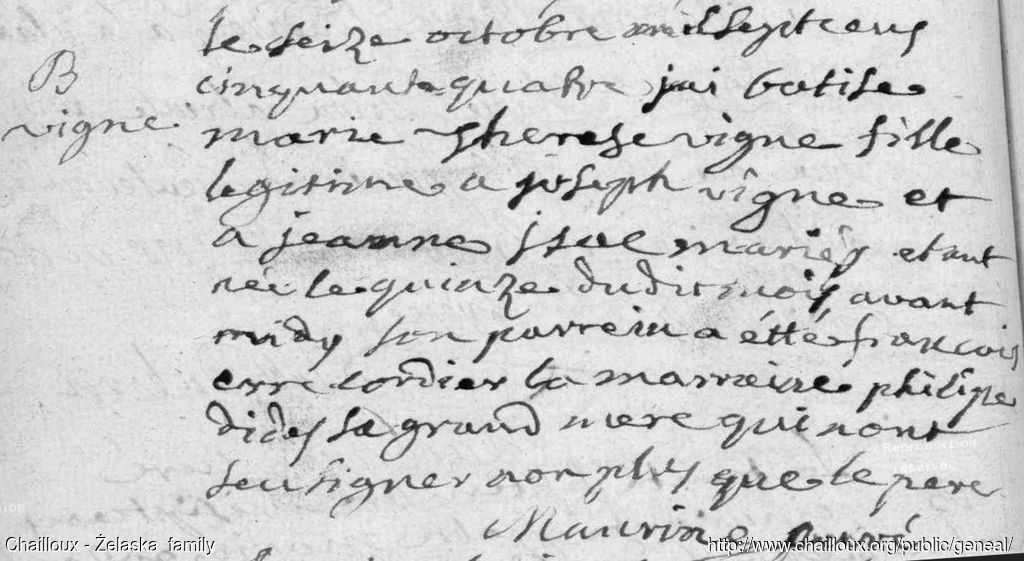 B
vigne
le seize octobre mil sept cens
cinquante quatre jai batise
marie therese vigne fille
legitime a joseph vigne et
a jeanne isac mariés etant
née le quinze dudit mois avant
midy son parrein a étté francois
erre cordier la marreine philipe
dides sa grand mere qui nont
seu signer non plus que le pere
Maurine curé
Chailloux - Żelaska family
http://www.chailloux.org/public/geneal/